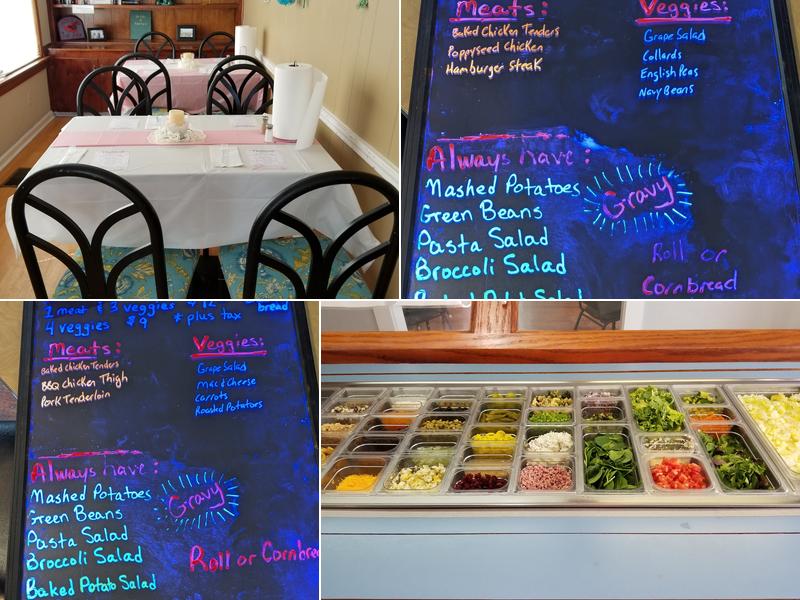 Meats:
Baked Chicken Tenders
Poppyseed Chicken
Hamburger Steak
Veggies:
Grape Salad
Collards
English Peas
Navy Beans
Always have:
Mashed Potatoes
Green Beans
Pasta Salad
Broccoli Salad
Gravy
Roll or
Cornbread
1 meat & 3 veggies $12
bread
4 veggies $9 * plus tax
Meats:
Baked Chicken Tenders
BBQ Chicken Thigh
Pork Tenderloin
Veggies:
Grape Salad
Mac & Cheese
Carrots
Roasted Potatoes
Always have:
Mashed Potatoes
Green Beans
Pasta Salad
Broccoli Salad
Baked Potato Salad
Gravy
Roll or Cornbrea